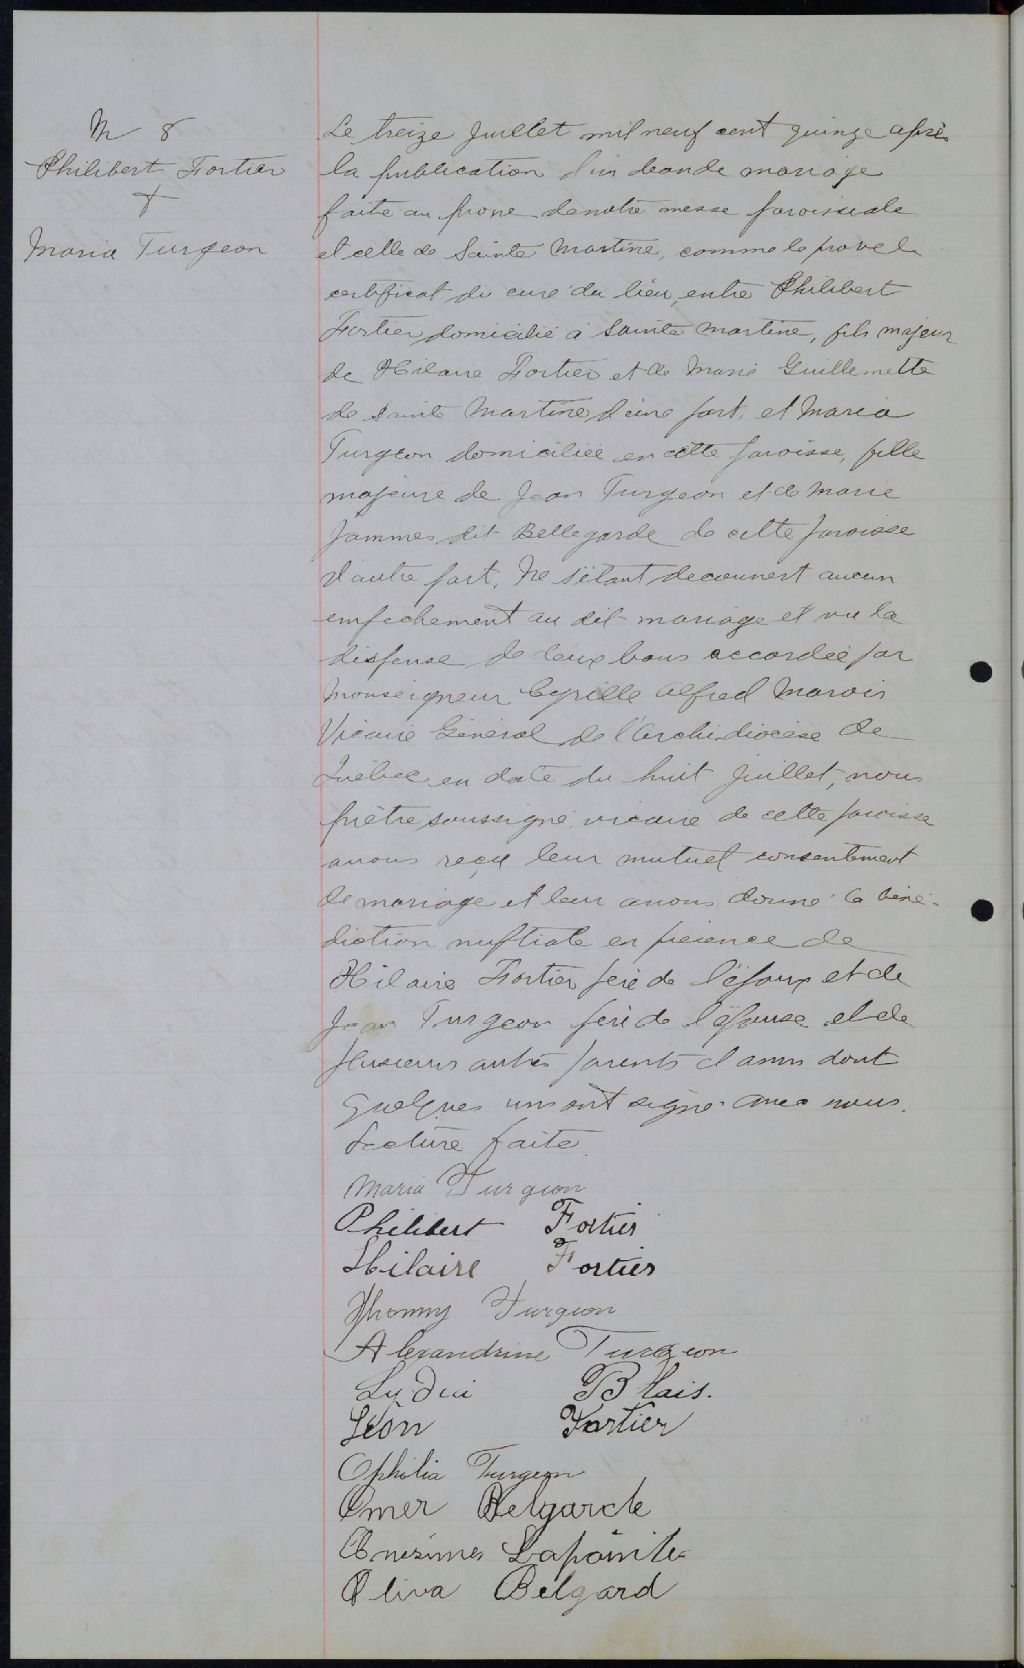 M 8
Philibert Fortier
&
Maria Turgeon
Le treize Juillet mil neuf cent quinze après
la publication d'un ban de mariage
faite au prone de notre messe paroissiale
et celle de Sainte Martine, comme le prove le
certificat du curé du lieu, entre Philibert
Fortier domicilié à Sainte Martine, fils majeur
de Hilaire Fortier et de Marie Guillemette
de Sainte Martine d'une part, et Maria
Turgeon domiciliée en cette paroisse, fille
majeure de Jean Turgeon et de Marie
Jammes dit Bellegarde de cette paroisse
d'autre part. Ne s'étant decouvert aucun
empechement au dit mariage et vu la
dispense de deux bans accordée par
Monseigneur Cyrille Alfred Marois
Vicaire Général de l'Archidiocèse de
Québec en date du huit Juillet, nous
prêtre soussigné vicaire de cette paroisse
avons reçu leur mutuel consentement
de mariage et leur avons donné la béné-
diction nuptiale en présence de
Hilaire Fortier père de l'époux et de
Jean Turgeon père de l'épouse et de
plusieurs autres parents et amis dont
quelques uns ont signé avec nous.
Lecture faite.
Maria Turgeon
Philibert Fortier
Hilaire Fortier
Jhonny Turgeon
Alexandrine Turgeon
Lydia Blais.
Léon Fortier
Ophilia Turgeon
Omer Belgarde
Onezimes Lapointe
Oliva Belgard